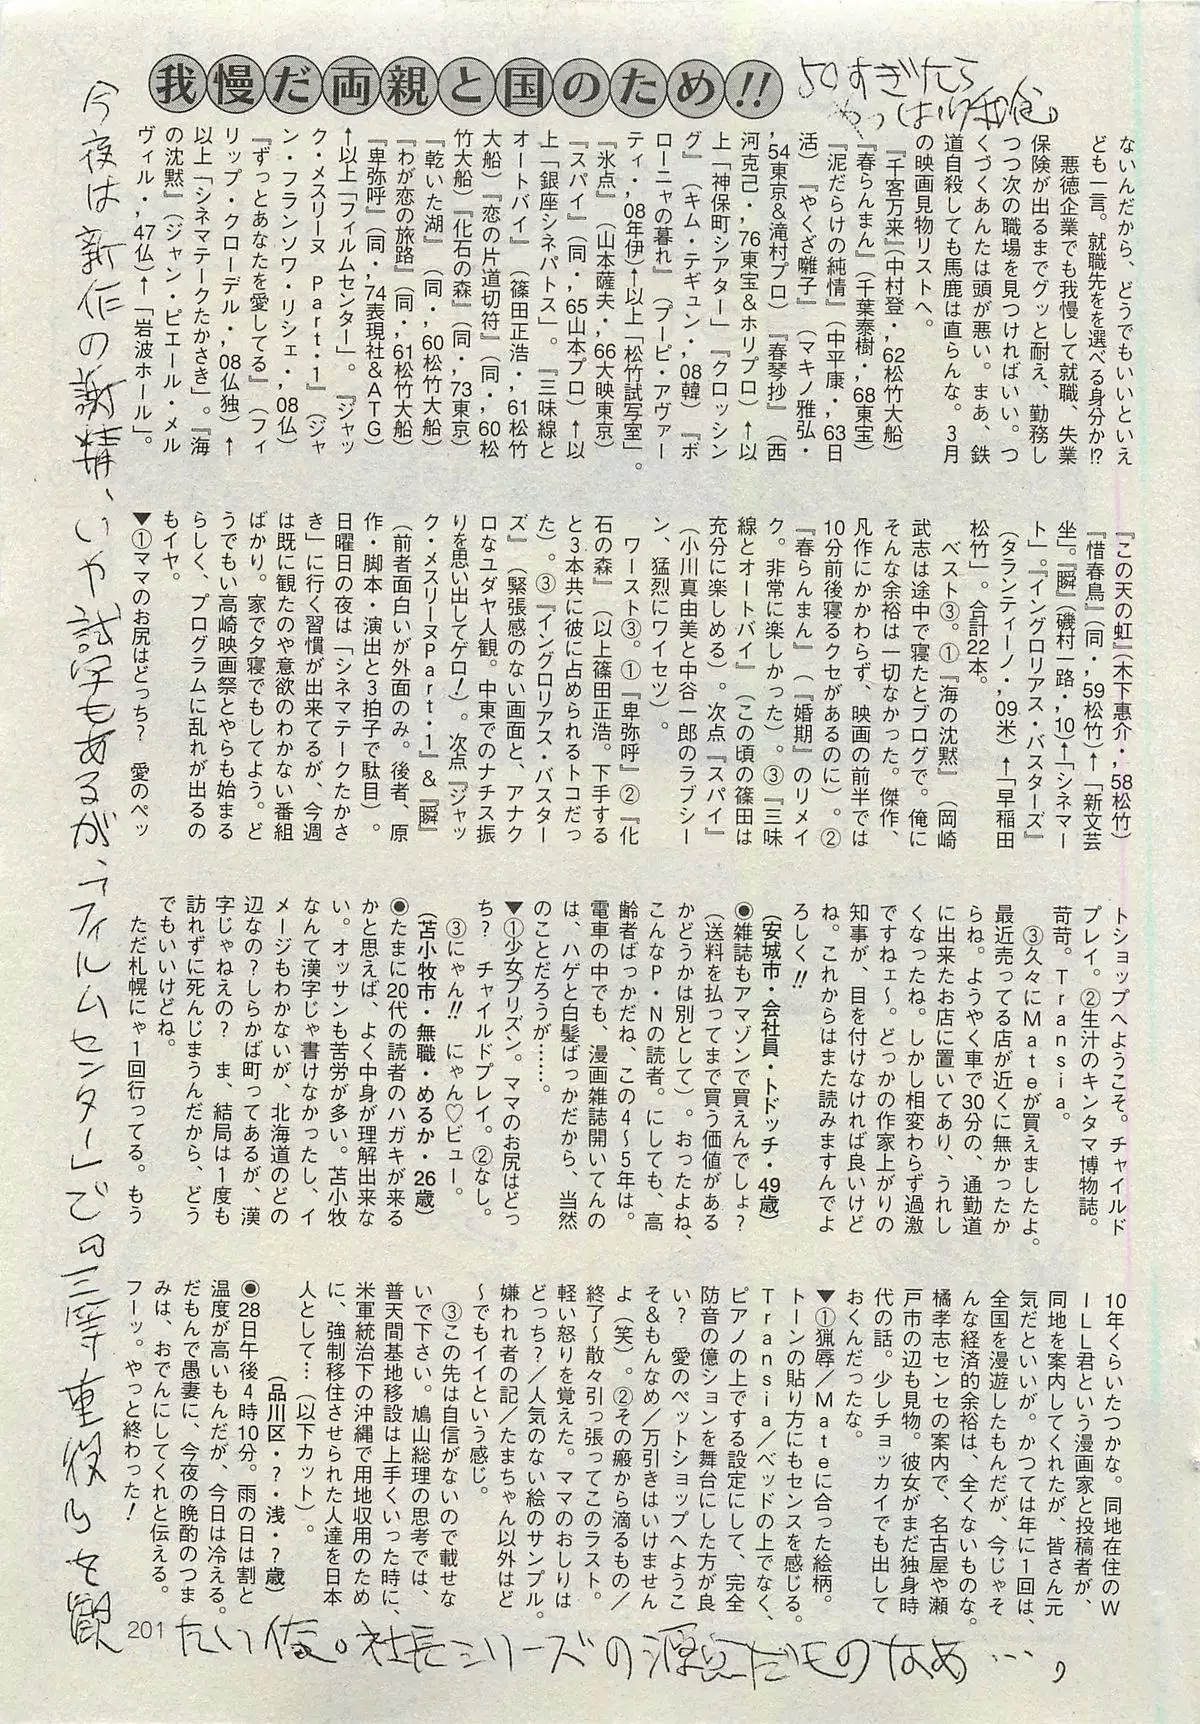 我慢だ両親と国のため!!
50すぎたら
やっぱり和食。
ないんだから、どうでもいいといえ
ども一言。就職先をを選べる身分か!?
悪徳企業でも我慢して就職、失業
保険が出るまでグッと耐え、勤務し
つつ次の職場を見つければいい。つ
くづくあんたは頭が悪い。まあ、鉄
道自殺しても馬鹿は直らんな。3月
の映画見物リストへ。
『千客万来』(中村登・,62松竹大船)
『春らんまん』(千葉泰樹・,68東宝)
『泥だらけの純情』(中平康・,63日
活)『やくざ囃子』(マキノ雅弘・
,54東京&滝村プロ)『春琴抄』(西
河克己・,76東宝&ホリプロ)↑以
上「神保町シアター」『クロッシン
グ』(キム・テギュン・,08韓)『ボ
ローニャの暮れ』(プーピ・アヴァー
ティ・,08年伊)↑以上「松竹試写室」。
『氷点』(山本薩夫・,66大映東京)
『スパイ』(同・,65山本プロ)↑以
上「銀座シネパトス」。『三味線と
オートバイ』(篠田正浩・,61松竹
大船)『恋の片道切符』(同・,60松
竹大船)『化石の森』(同・,73東京)
『乾いた湖』(同・,60松竹大船)
『わが恋の旅路』(同・,61松竹大船
『卑弥呼』(同・,74表現社&ATG)
↑以上「フィルムセンター」。『ジャッ
ク・メスリーヌ Part・1』(ジャ
ン・フランソワ・リシェ・,08仏)
『ずっとあなたを愛してる』(フィ
リップ・クローデル・,08仏独)↑
以上「シネマテークたかさき」。『海
の沈黙』(ジャン・ピエール・メル
ヴィル・,47仏)↑「岩波ホール」。
『この天の虹』(木下惠介・,58松竹)
『惜春鳥』(同・,59松竹)↑「新文芸
坐」。『瞬』(磯村一路・,10)↑「シネマー
ト」。『イングロリアス・バスターズ』
(タランティーノ・,09米)↑「早稲田
松竹」。合計22本。
ベスト③。①『海の沈黙』(岡崎
武志は途中で寝たとブログで。俺に
そんな余裕は一切なかった。傑作、
凡作にかかわらず、映画の前半では
10分前後寝るクセがあるのに)。②
『春らんまん』(『婚期』のリメイ
ク。非常に楽しかった)。③『三味
線とオートバイ』(この頃の篠田は
充分に楽しめる)。次点『スパイ』
(小川真由美と中谷一郎のラブシー
ン、猛烈にワイセツ)。
ワースト③。①『卑弥呼』②『化
石の森』(以上篠田正浩。下手する
と3本共に彼に占められるトコだっ
た)。③『イングロリアス・バスター
ズ』(緊張感のない画面と、アナク
ロなユダヤ人観。中東でのナチス振
りを思い出してゲロ!)。次点『ジャッ
ク・メスリーヌPart・1』&『瞬』
(前者面白いが外面のみ。後者、原
作・脚本・演出と3拍子で駄目)。
日曜日の夜は「シネマテークたかさ
き」に行く習慣が出来てるが、今週
は既に観たのや意欲のわかない番組
ばかり。家で夕寝でもしてよう。ど
うでもいい高崎映画祭とやらも始まる
らしく、プログラムに乱れが出るの
もイヤ。
▼①ママのお尻はどっち? 愛のペッ
トショップへようこそ。チャイルド
プレイ。②生汁のキンタマ博物誌。
苛苛。Transia。
③久々にMateが買えましたよ。
最近売ってる店が近くに無かったか
らね。ようやく車で30分の、通勤道
に出来たお店に置いてあり、うれし
くなったね。しかし相変わらず過激
ですねェ~。どっかの作家上がりの
知事が、目を付けなければ良いけど
ね。これからはまた読みますんでよ
ろしく!!
(安城市・会社員・トドッチ・49歳)
◉雑誌もアマゾンで買えんでしょ?
(送料を払ってまで買う価値がある
かどうかは別として)。おったよね、
こんなP・Nの読者。にしても、高
齢者ばっかだね、この4~5年は。
電車の中でも、漫画雑誌開いてんの
は、ハゲと白髪ばっかだから、当然
のことだろうが……。
▼①少女プリズン。ママのお尻はどっ
ち? チャイルドプレイ。②なし。
③にゃん!! にゃん♡ビュー。
(苫小牧市・無職・めるか・26歳)
◉たまに20代の読者のハガキが来る
かと思えば、よく中身が理解出来な
い。オッサンも苦労が多い。苫小牧
なんて漢字じゃ書けなかったし、イ
メージもわかないが、北海道のどの
辺なの?しらかば町ってあるが、漢
字じゃねえの? ま、結局は1度も
訪れずに死んじまうんだから、どう
でもいいけどね。
ただ札幌にゃ1回行ってる。もう
10年くらいたつかな。同地在住のW
ILL君という漫画家と投稿者が、
同地を案内してくれたが、皆さん元
気だといいが。かつては年に1回は、
全国を漫遊したもんだが、今じゃそ
んな経済的余裕は、全くないものな。
橘孝志センセの案内で、名古屋や瀬
戸市の辺も見物。彼女がまだ独身時
代の話。少しチョッカイでも出して
おくんだったな。
▼①猟辱/Mateに合った絵柄。
トーンの貼り方にもセンスを感じる。
Transia/ベッドの上でなく、
ピアノの上でする設定にして、完全
防音の億ションを舞台にした方が良
い? 愛のペットショップへようこ
そ&もんなめ/万引きはいけません
よ(笑)。②その瘢から滴るもの/
終了~散々引っ張ってこのラスト。
軽い怒りを覚えた。ママのおしりは
どっち?/人気のない絵のサンプル。
嫌われ者の記/たまちゃん以外はど
~でもイイという感じ。
③この先は自信がないので載せな
いで下さい。鳩山総理の思考では、
普天間基地移設は上手くいった時に、
米軍統治下の沖縄で用地収用のため
に、強制移住させられた人達を日本
人として…(以下カット)。
(品川区・?・浅・?歳)
◉28日午後4時10分。雨の日は割と
温度が高いもんだが、今日は冷える。
だもんで愚妻に、今夜の晩酌のつま
みは、おでんにしてくれと伝える。
フーッ。やっと終わった!
今夜は新作の謝精、いや試写もあるが、「フィルムセンター」での「三等重役」を観
たい俺。社長シリーズの源点だものなぁ…。
201